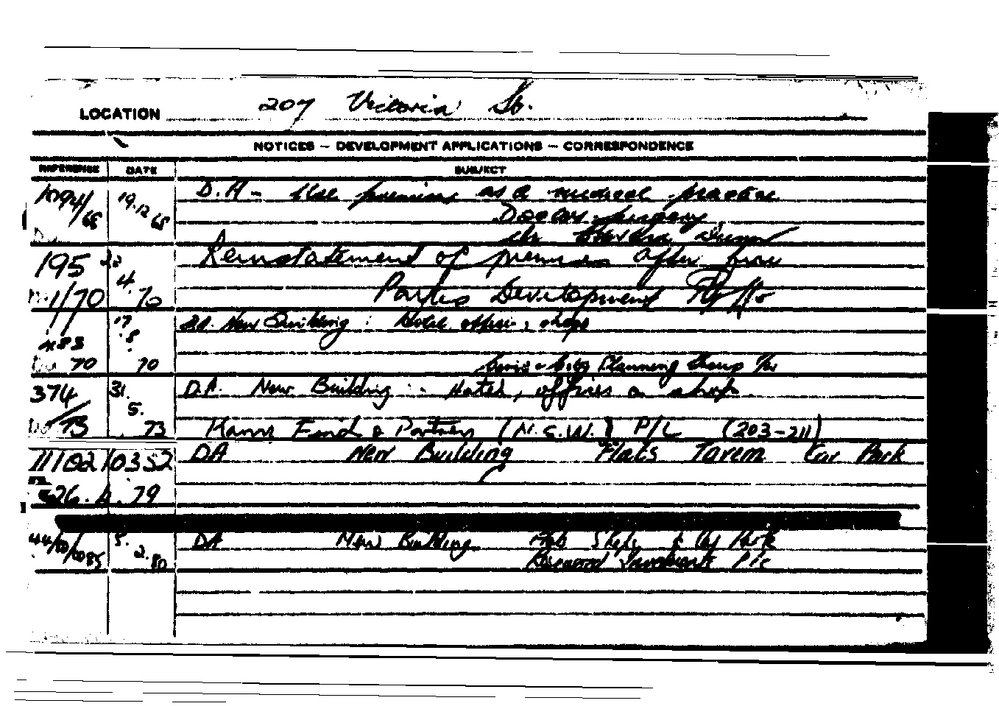 LOCATION 207 Victoria St.
NOTICES — DEVELOPMENT APPLICATIONS — CORRESPONDENCE
REFERENCE DATE SUBJECT
1094/68 19.12.68 D.A - Use premises as a medical practice
Doctors surgery
195 22 Reinstatement of premises after fire
1/70 4. 70 Parkes Development P/L
17 D.A. New Building : Hotel offices, shops
483 8.
70 70 Planning Group P/L
374 31. D.A. New Building :- Hotel, offices & shop.
/73 5. 73 Kann Finch & Partners (N.S.W.) P/L (203-211)
11102 10352 DA New Building Flats Tavern Car Park
26.4.79
44/80/0085 5.2.80 DA New Building & Car Park
P/L